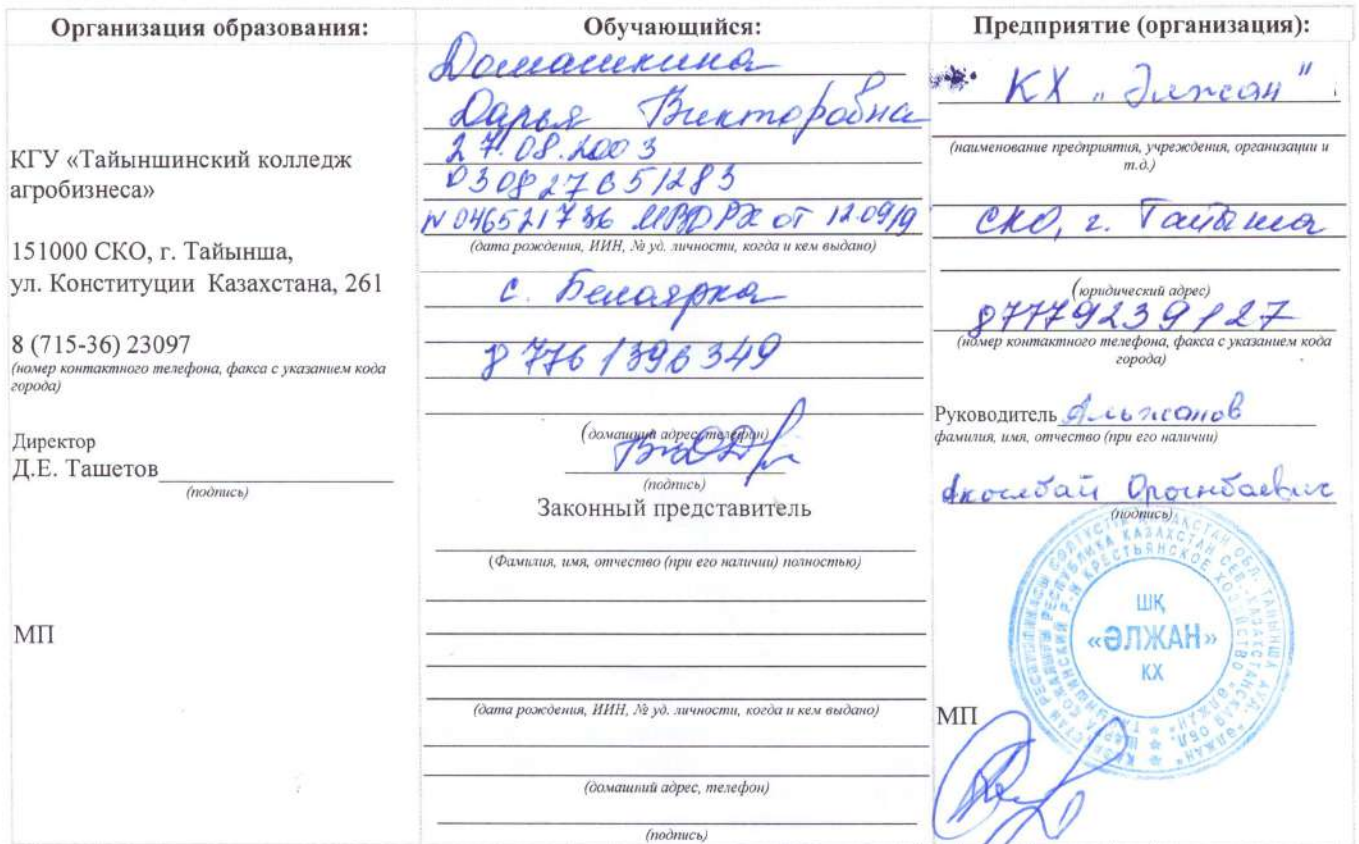 Организация образования:
КГУ «Тайыншинский колледж
агробизнеса»
151000 СКО, г. Тайынша,
ул. Конституции Казахстана, 261
8 (715-36) 23097
(номер контактного телефона, факса с указанием кода
города)
Директор
Д.Е. Ташетов
(подпись)
МП
Обучающийся:
Домашкина
Дарья Викторовна
27.08.2003
030827651283
N 046521736 МВД РК от 12.09.19
(дата рождения, ИИН, № уд. личности, когда и кем выдано)
с. Белоярка
8 776 1396349
(домашний адрес, телефон)
(подпись)
Законный представитель
(Фамилия, имя, отчество (при его наличии) полностью)
(дата рождения, ИИН, № уд. личности, когда и кем выдано)
(домашний адрес, телефон)
(подпись)
Предприятие (организация):
КХ "Әлжан"
(наименование предприятия, учреждения, организации и
т.д.)
СКО, г. Тайынша
(юридический адрес)
87779239127
(номер контактного телефона, факса с указанием кода
города)
Руководитель Альжанов
фамилия, имя, отчество (при его наличии)
(подпись)
ШҚ
«ӘЛЖАН»
КХ
МП